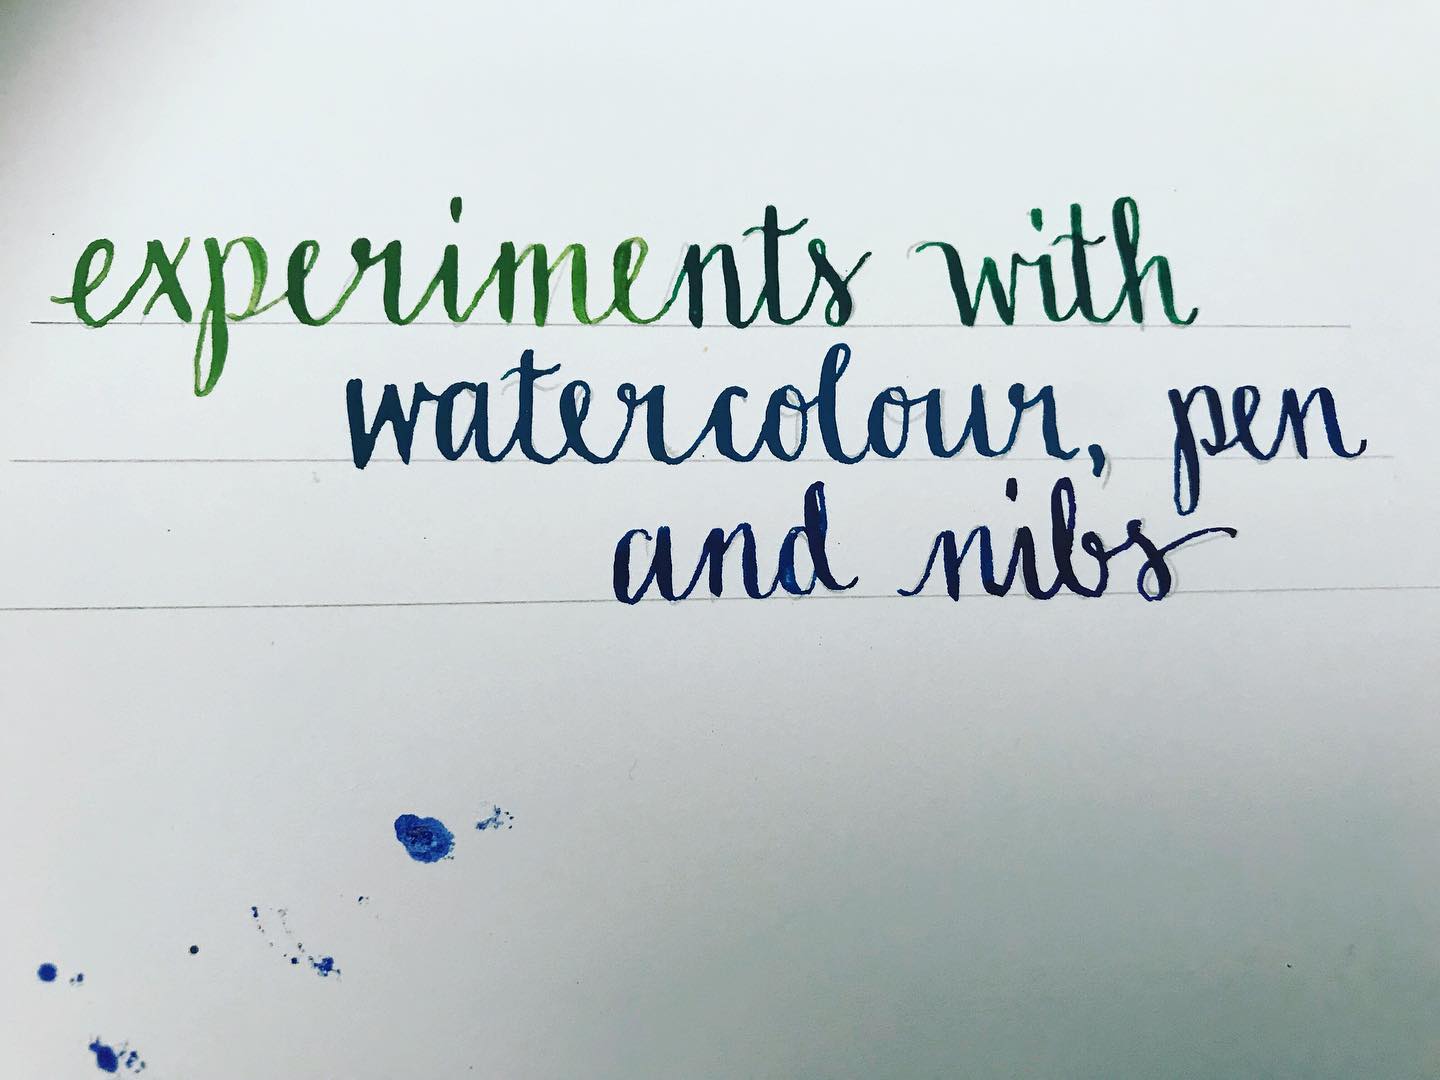 experiments with
watercolour, pen
and nibs